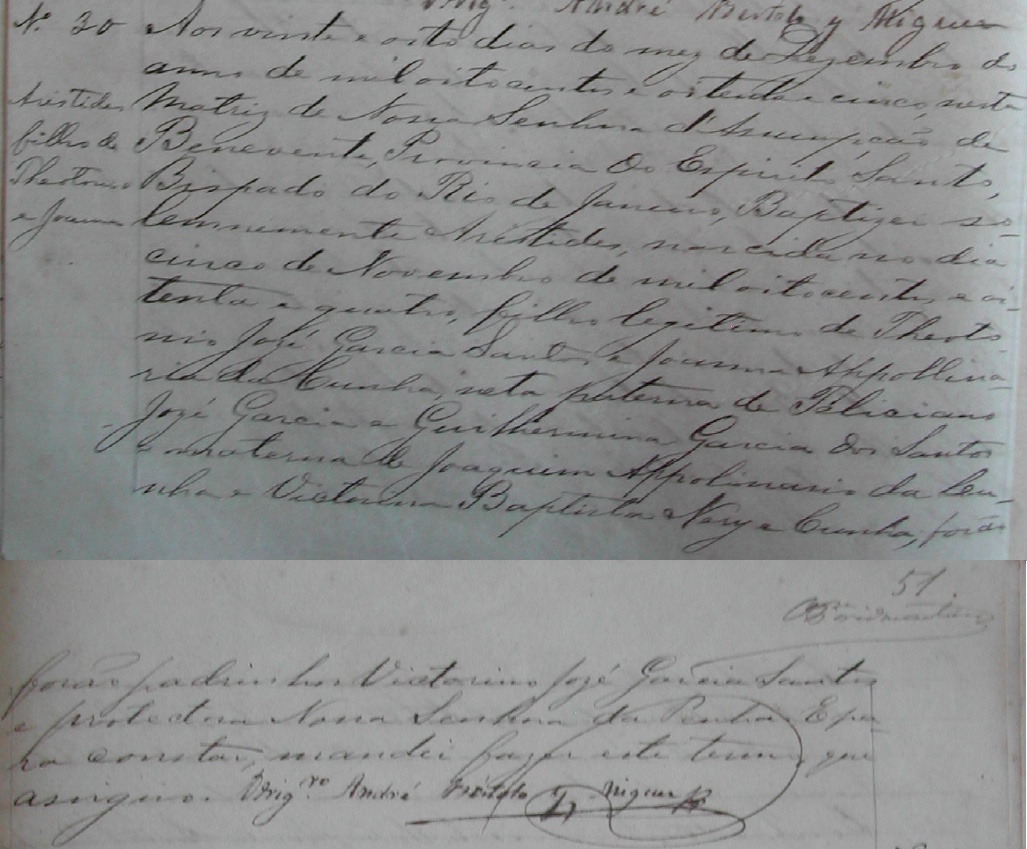 Vrigº. André Bértolo y Miguez
Nº. 30 Aos vinte e oito dias do mez de Dezembro do
anno de mil oitocentos e oitenta e cinco, nesta
Aristides Matriz de Nossa Senhora d'Assumpção de
filho de Benevente, Provincia do Espirito Santo,
Theotonio Bispado do Rio de Janeiro, Baptizei so-
e Joanna lemnemente Aristides, nascido no dia
cinco de Novembro de mil oitocentos e oi-
tenta e quatro, filho legitimo de Theoto-
nio José Garcia Santos e Joanna Appollina-
ria da Cunha, neto paterno de Feliciano
José Garcia e Guilhermina Garcia dos Santos
e materno de Joaquim Appolinario da Cu-
nha e Victorina Baptista Nery e Cunha, forão
51.
forão padrinhos Victorino José Garcia Santos
e protectora Nossa Senhora da Penha. E pa-
ra constar, mandei fazer este termo que
assigno. Vrigro. André Bértolo y Miguez